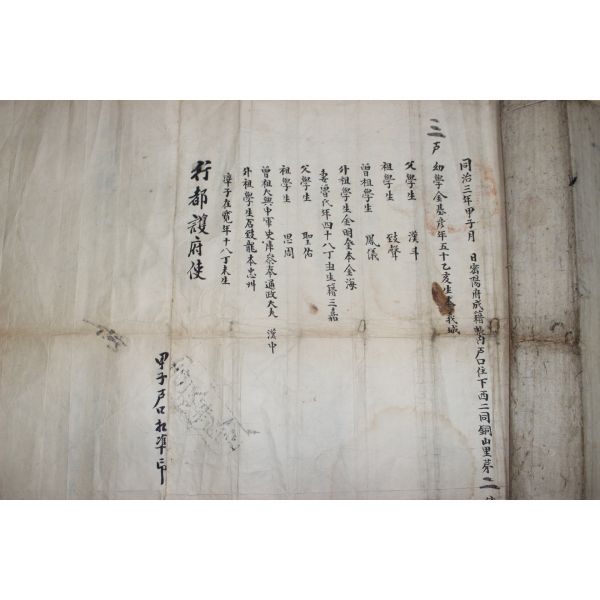 同治三年甲子月　日雲陽府成籍縣內戶口住下西二同銅山里第三
三戶　幼學金基彦年五十乙亥生本義城
父學生　漢斗
祖學生　致聲
曾祖學生　鳳儀
外祖學生金田全本金海
妻曺氏年四十八丁丑生籍三嘉
父學生　聖佑
祖學生　思周
曾祖大興中軍史庫參奉通政大夫　漢中
外祖學生石致龍本忠州
率子在寬年十八丁未生
行都護府使
甲子戶口相準印